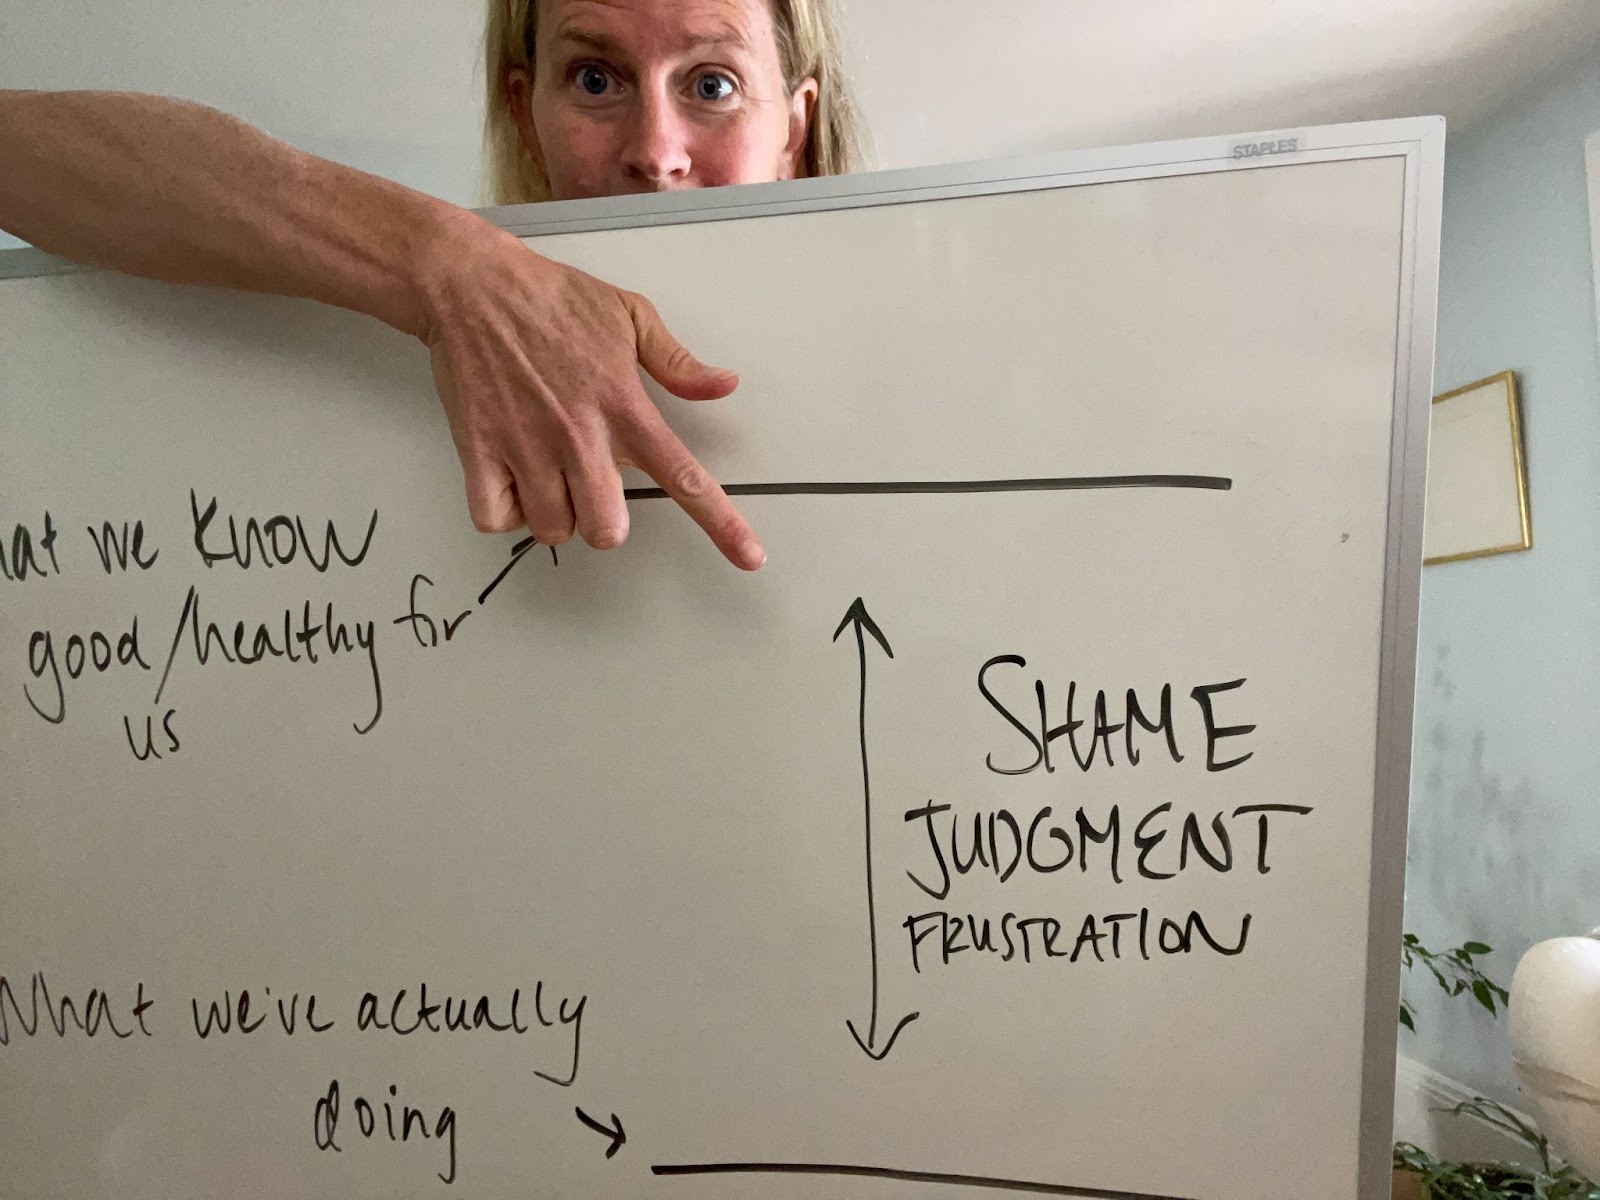 STAPLES
we know
good/healthy for
us
SHAME
JUDGMENT
FRUSTRATION
What we've actually
doing